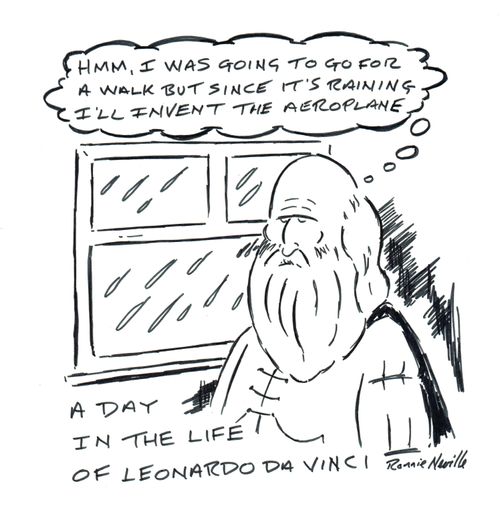 HMM, I WAS GOING TO GO FOR
A WALK BUT SINCE IT'S RAINING
I'LL INVENT THE AEROPLANE
A DAY
IN THE LIFE
OF LEONARDO DA VINCI
Ronnie Neville